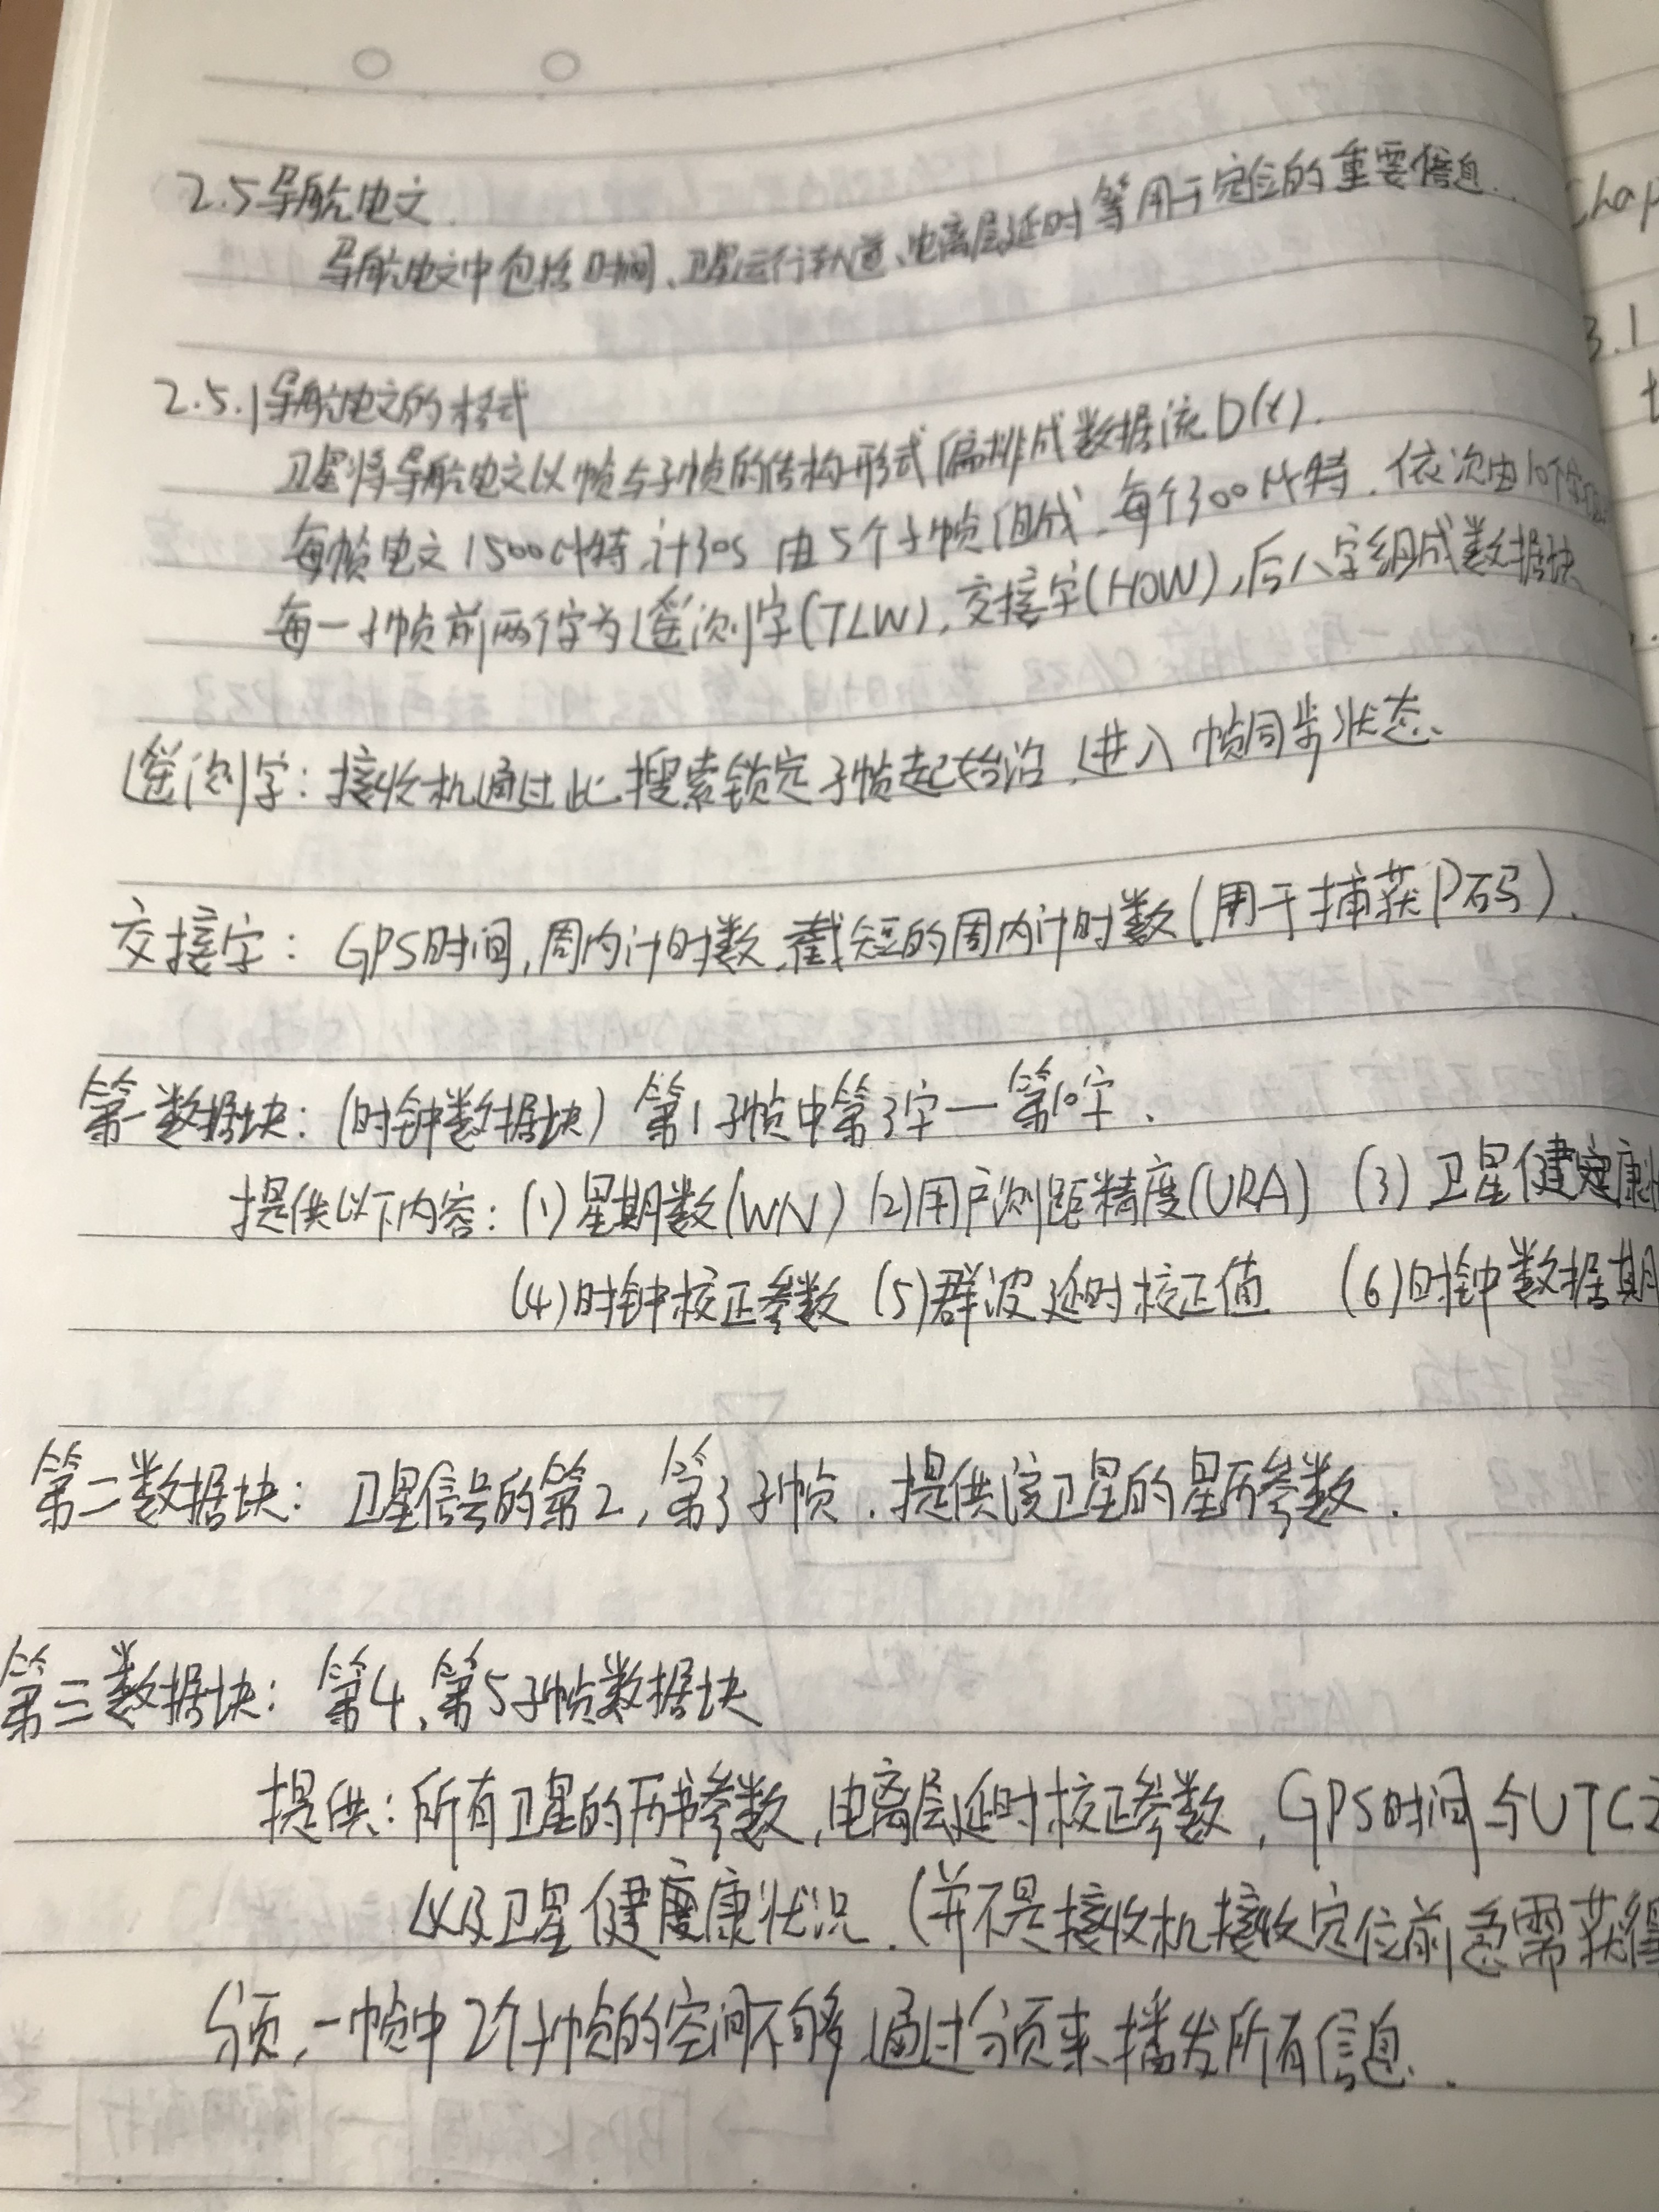 2.5 导航电文
导航电文中包括时间、卫星运行轨道、电离层延时等用于定位的重要信息.
2.5.1 导航电文的格式
卫星将导航电文以帧与子帧的结构形式编排成数据流D(t).
每帧电文1500比特,计30s 由5个子帧组成.每个300比特.依次由10个字
每一子帧前两个字为遥测字(TLW),交接字(HOW),后八字组成数据块
遥测字:接收机通过此搜索锁定子帧起始沿,进入帧同步状态.
交接字:GPS时间,周内计时数,截短的周内计时数(用于捕获P码).
第一数据块:(时钟数据块) 第1子帧中第3字一第10字.
提供以下内容:(1)星期数(WN) (2)用户测距精度(URA) (3)卫星健康
(4)时钟校正参数 (5)群波延时校正值 (6)时钟数据期
第二数据块:卫星信号的第2,第3子帧.提供该卫星的星历参数.
第三数据块:第4、第5子帧数据块
提供:所有卫星的历书参数,电离层延时校正参数,GPS时间与UTC之
以及卫星健康状况.(并不是接收机接收定位前急需获得
分页,一帧中2个子帧的空间不够,通过分页来播发所有信息.
Chap
3.1